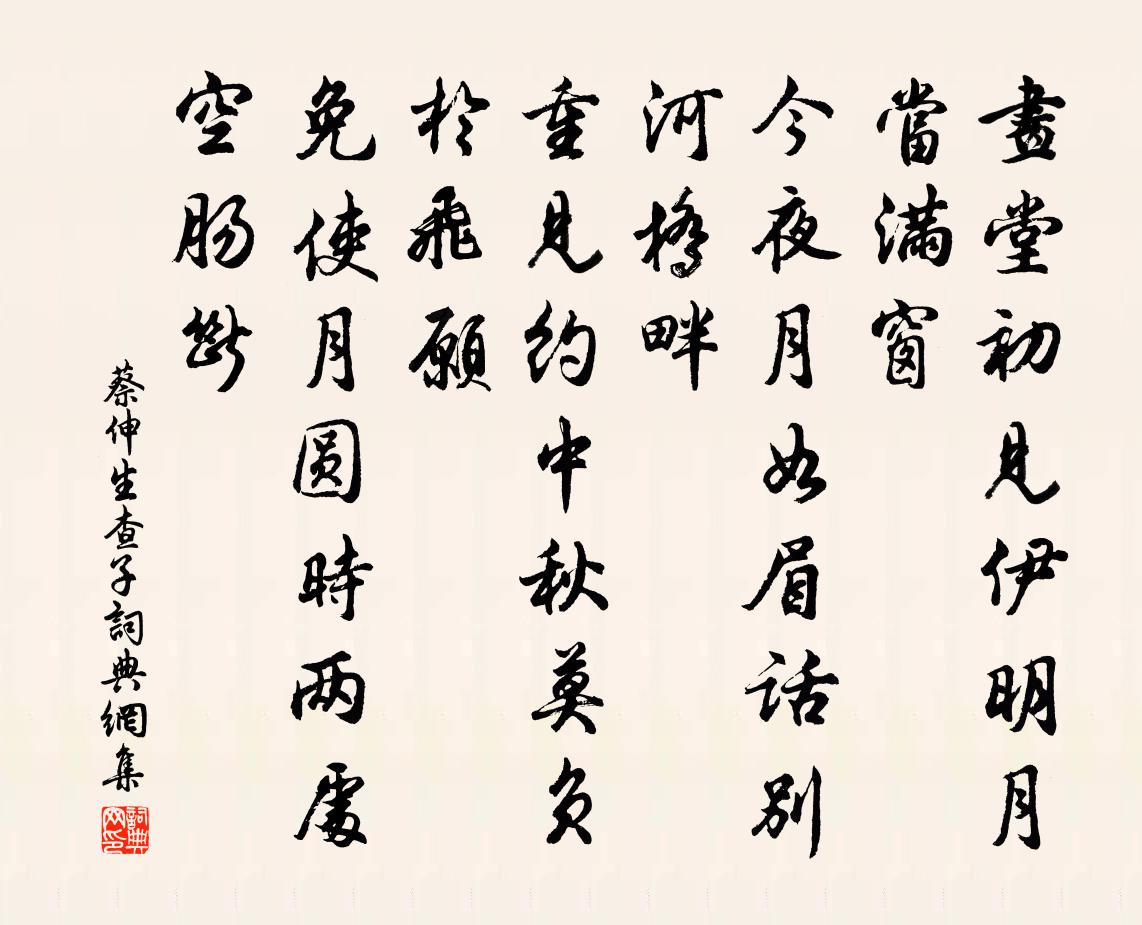 畫堂初見伊明月
當滿窗
今夜月如眉話別
河橋畔
重見約中秋莫負
於飛願
免使月圓時两處
空腸斷
蔡伸生查子詞典網集
詞典网印